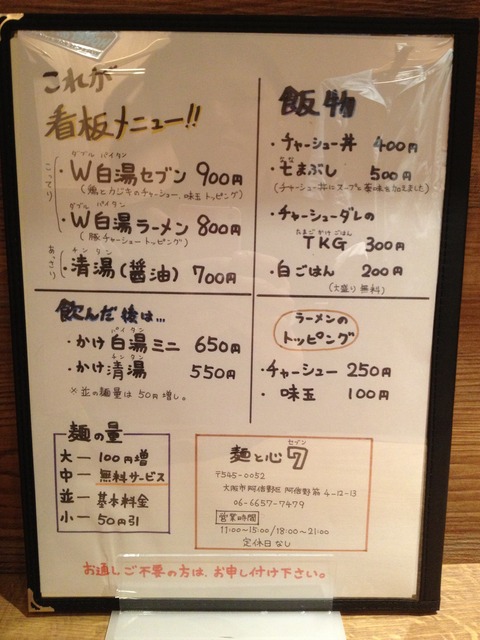 これが
看板メニュー!!
こってり
ダブル パイタン
・W白湯セブン 900円
(鶏とカジキのチャーシュー、味玉トッピング)
ダブル パイタン
・W白湯ラーメン 800円
(豚チャーシュートッピング)
あっさり
チンタン
・清湯(醤油) 700円
飲んだ後は…
パイタン
・かけ白湯ミニ 650円
チンタン
・かけ清湯 550円
※並の麺量は50円増し。
麺の量
大ー100円増
中ー無料サービス
並ー基本料金
小ー50円引
飯物
・チャーシュー丼 400円
・七まぶし 500円
(チャーシュー丼にスープと薬味を加えました)
・チャーシューダレの
たまごかけごはん
TKG 300円
・白ごはん 200円
(大盛り無料)
ラーメンの
トッピング
・チャーシュー 250円
・味玉 100円
セブン
麺と心 7
〒545-0052
大阪市阿倍野区阿倍野筋4-12-13
06-6657-7479
営業時間
11:00~15:00/18:00~21:00
定休日なし
お通しご不要の方は、お申し付け下さい。